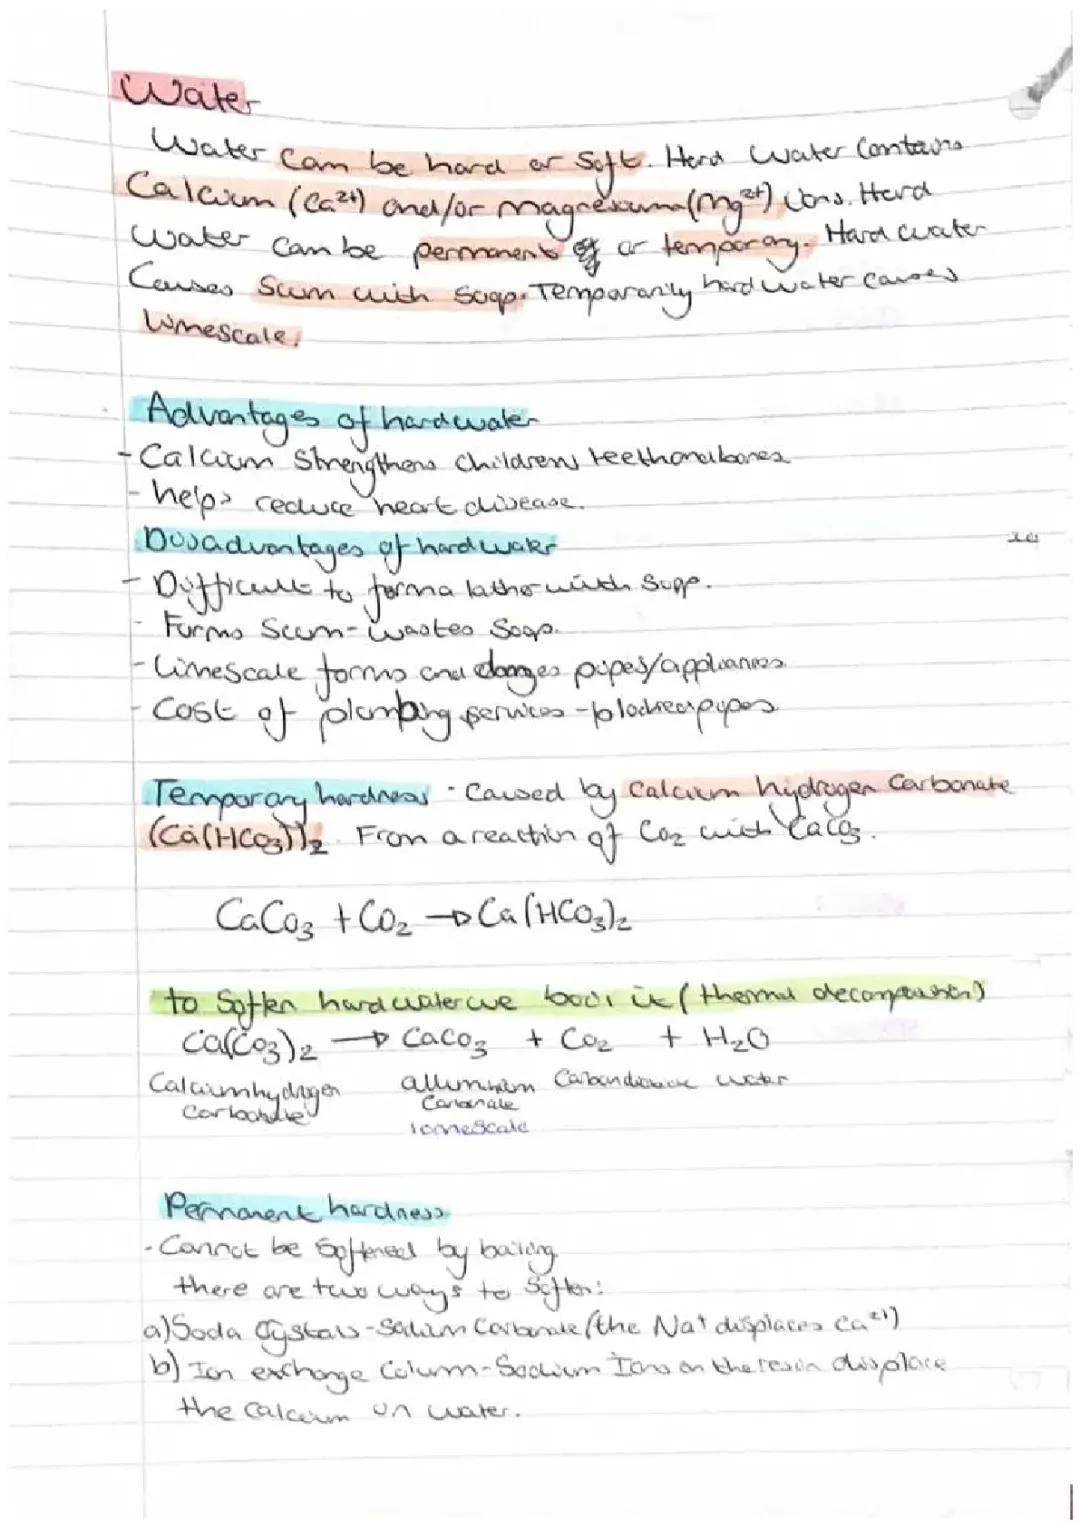 Water
Water can be hard or soft. Hard water contains
Calcium (Ca²⁺) and/or magnesium (Mg²⁺) ions. Hard
water can be permanent or temporary. Hard water
Causes Scum with soap. Temporarily hard water causes
limescale.
Advantages of hard water
- Calcium Strengthens Childrens teeth and bones
- helps reduce heart disease.
Disadvantages of hard water
- Difficult to form a lather with soap.
- Forms Scum - wastes Soap.
- Limescale forms and damages pipes/appliances
- Cost of plumbing services - blocked pipes
Temporary hardness - Caused by Calcium hydrogen Carbonate
(Ca(HCO₃))₂. From a reaction of CO₂ with CaCO₃.
CaCO₃ + CO₂ → Ca(HCO₃)₂
to Soften hard water we boil it (thermal decomposition)
Ca(CO₃)₂ → CaCO₃ + CO₂ + H₂O
Calcium hydrogen alluminium Carbon dioxide water
Carbonate Carbonate
limescale
Permanent hardness
- Cannot be Softened by boiling
there are two ways to Soften:
a) Soda Crystals - Sodium Carbonate (the Na⁺ displaces Ca²⁺)
b) Ion exchange Column - Sodium Ions on the resin displace
the Calcium in water.